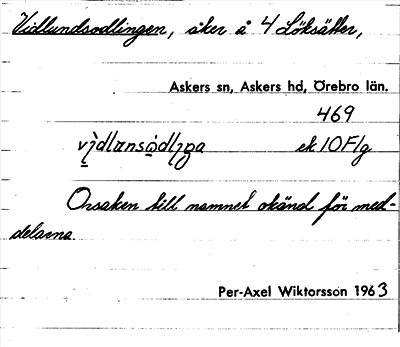 Vidlundsodlingen, åker å 4 Löksätter,
Askers sn, Askers hd, Örebro län.
469
ek 10F1g
Orsaken till namnet okänd för med-
delarna.
Per-Axel Wiktorsson 1963